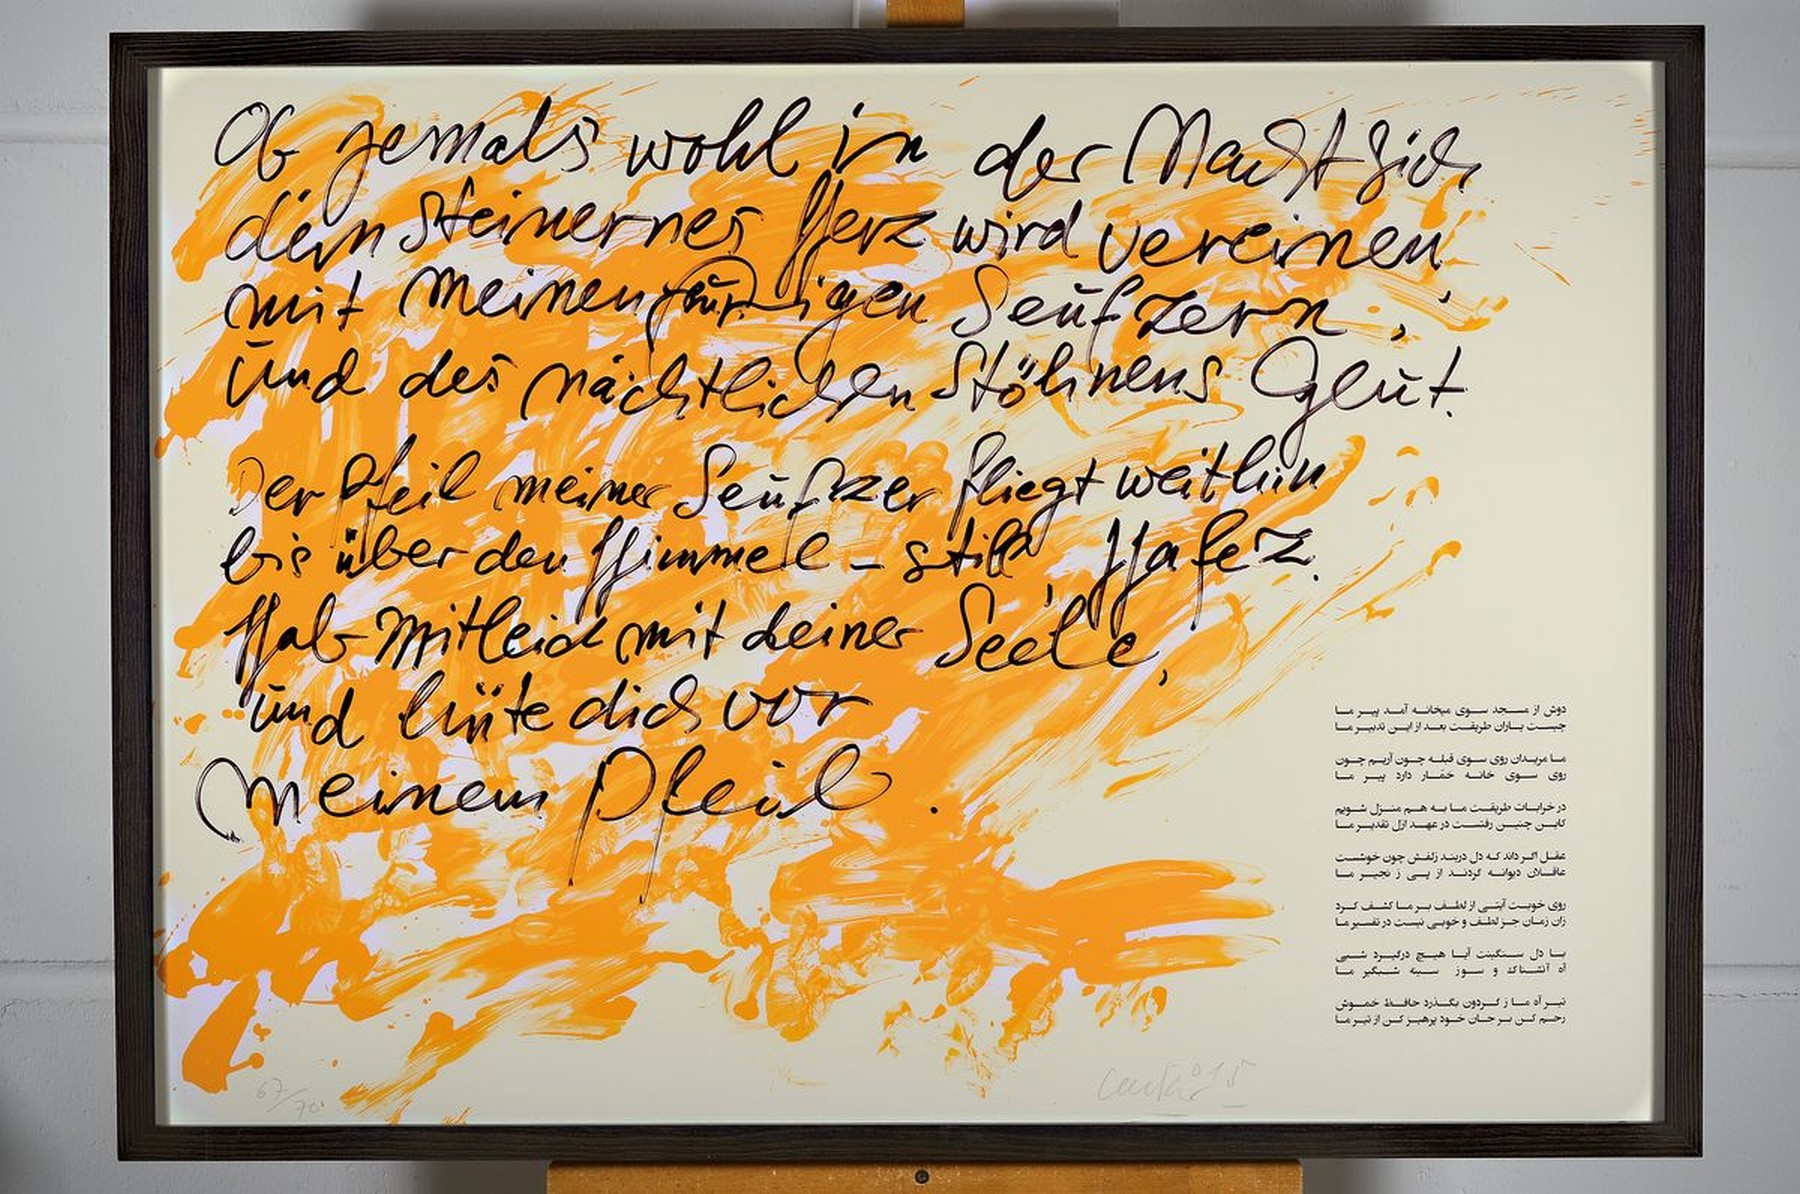 Ob jemals wohl in der Nacht sich
dein steinernes Herz wird vereinen,
mit meinen feurigen Seufzern,
und des nächtlichen Stöhnens Glut.
Der Pfeil meiner Seufzer fliegt weithin
bis über den Himmel – still, Hafez.
Hab Mitleid mit deiner Seele,
und hüte dich vor
meinem Pfeil.
دوش از مسجد سوی میخانه آمد پیر ما
چیست یاران طریقت بعد از این تدبیر ما
ما مریدان روی سوی قبله چون آریم چون
روی سوی خانه خمّار دارد پیر ما
در خرابات طریقت ما به هم منزل شویم
کاین چنین رفتست در عهد ازل تقدیر ما
عقل اگر داند که دل دربند زلفش چون خوشست
عاقلان دیوانه گردند از پی ز نجیر ما
روی خوبت آیتی از لطف بر ما کشف کرد
زان زمان جز لطف و خوبی نیست در تفسیر ما
با دل سنگینت آیا هیچ درگیرد شبی
آه آتشناک و سوز سینه شبگیر ما
تیر آه ما ز گردون بگذرد حافظ خموش
رحم کن بر جان خود پرهیز کن از تیر ما
67/70